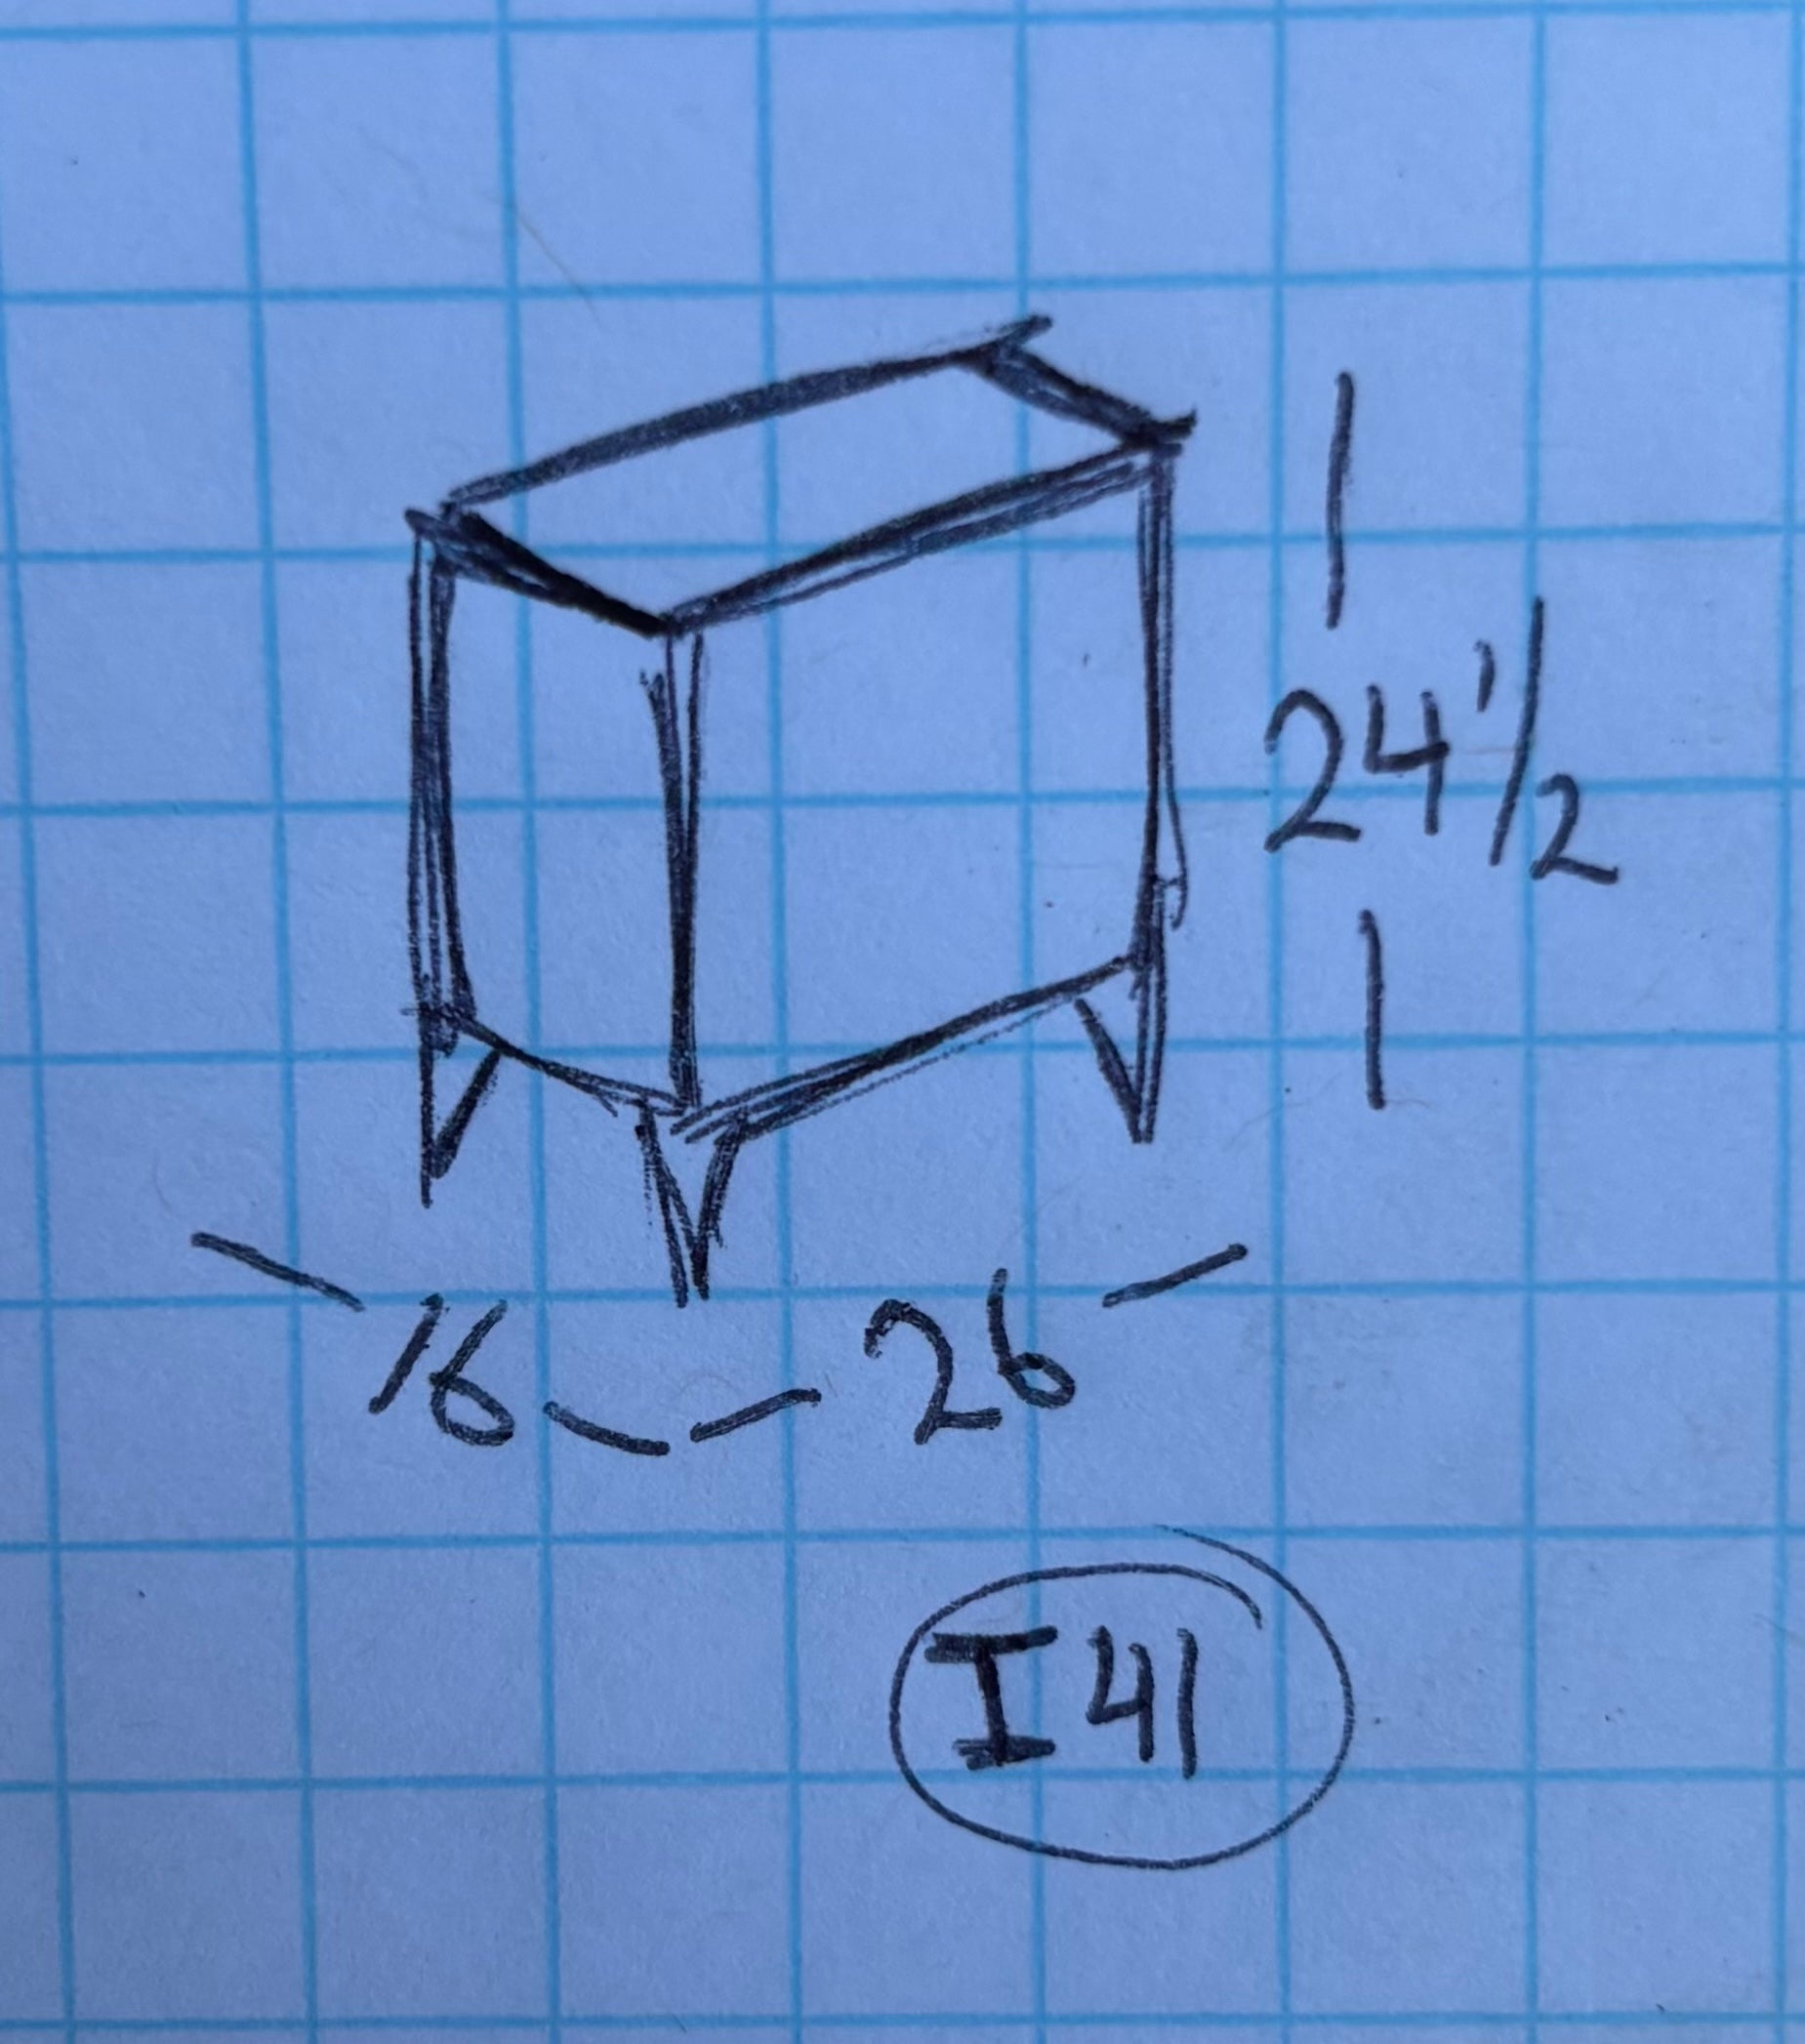 24 1/2
16 26
I41